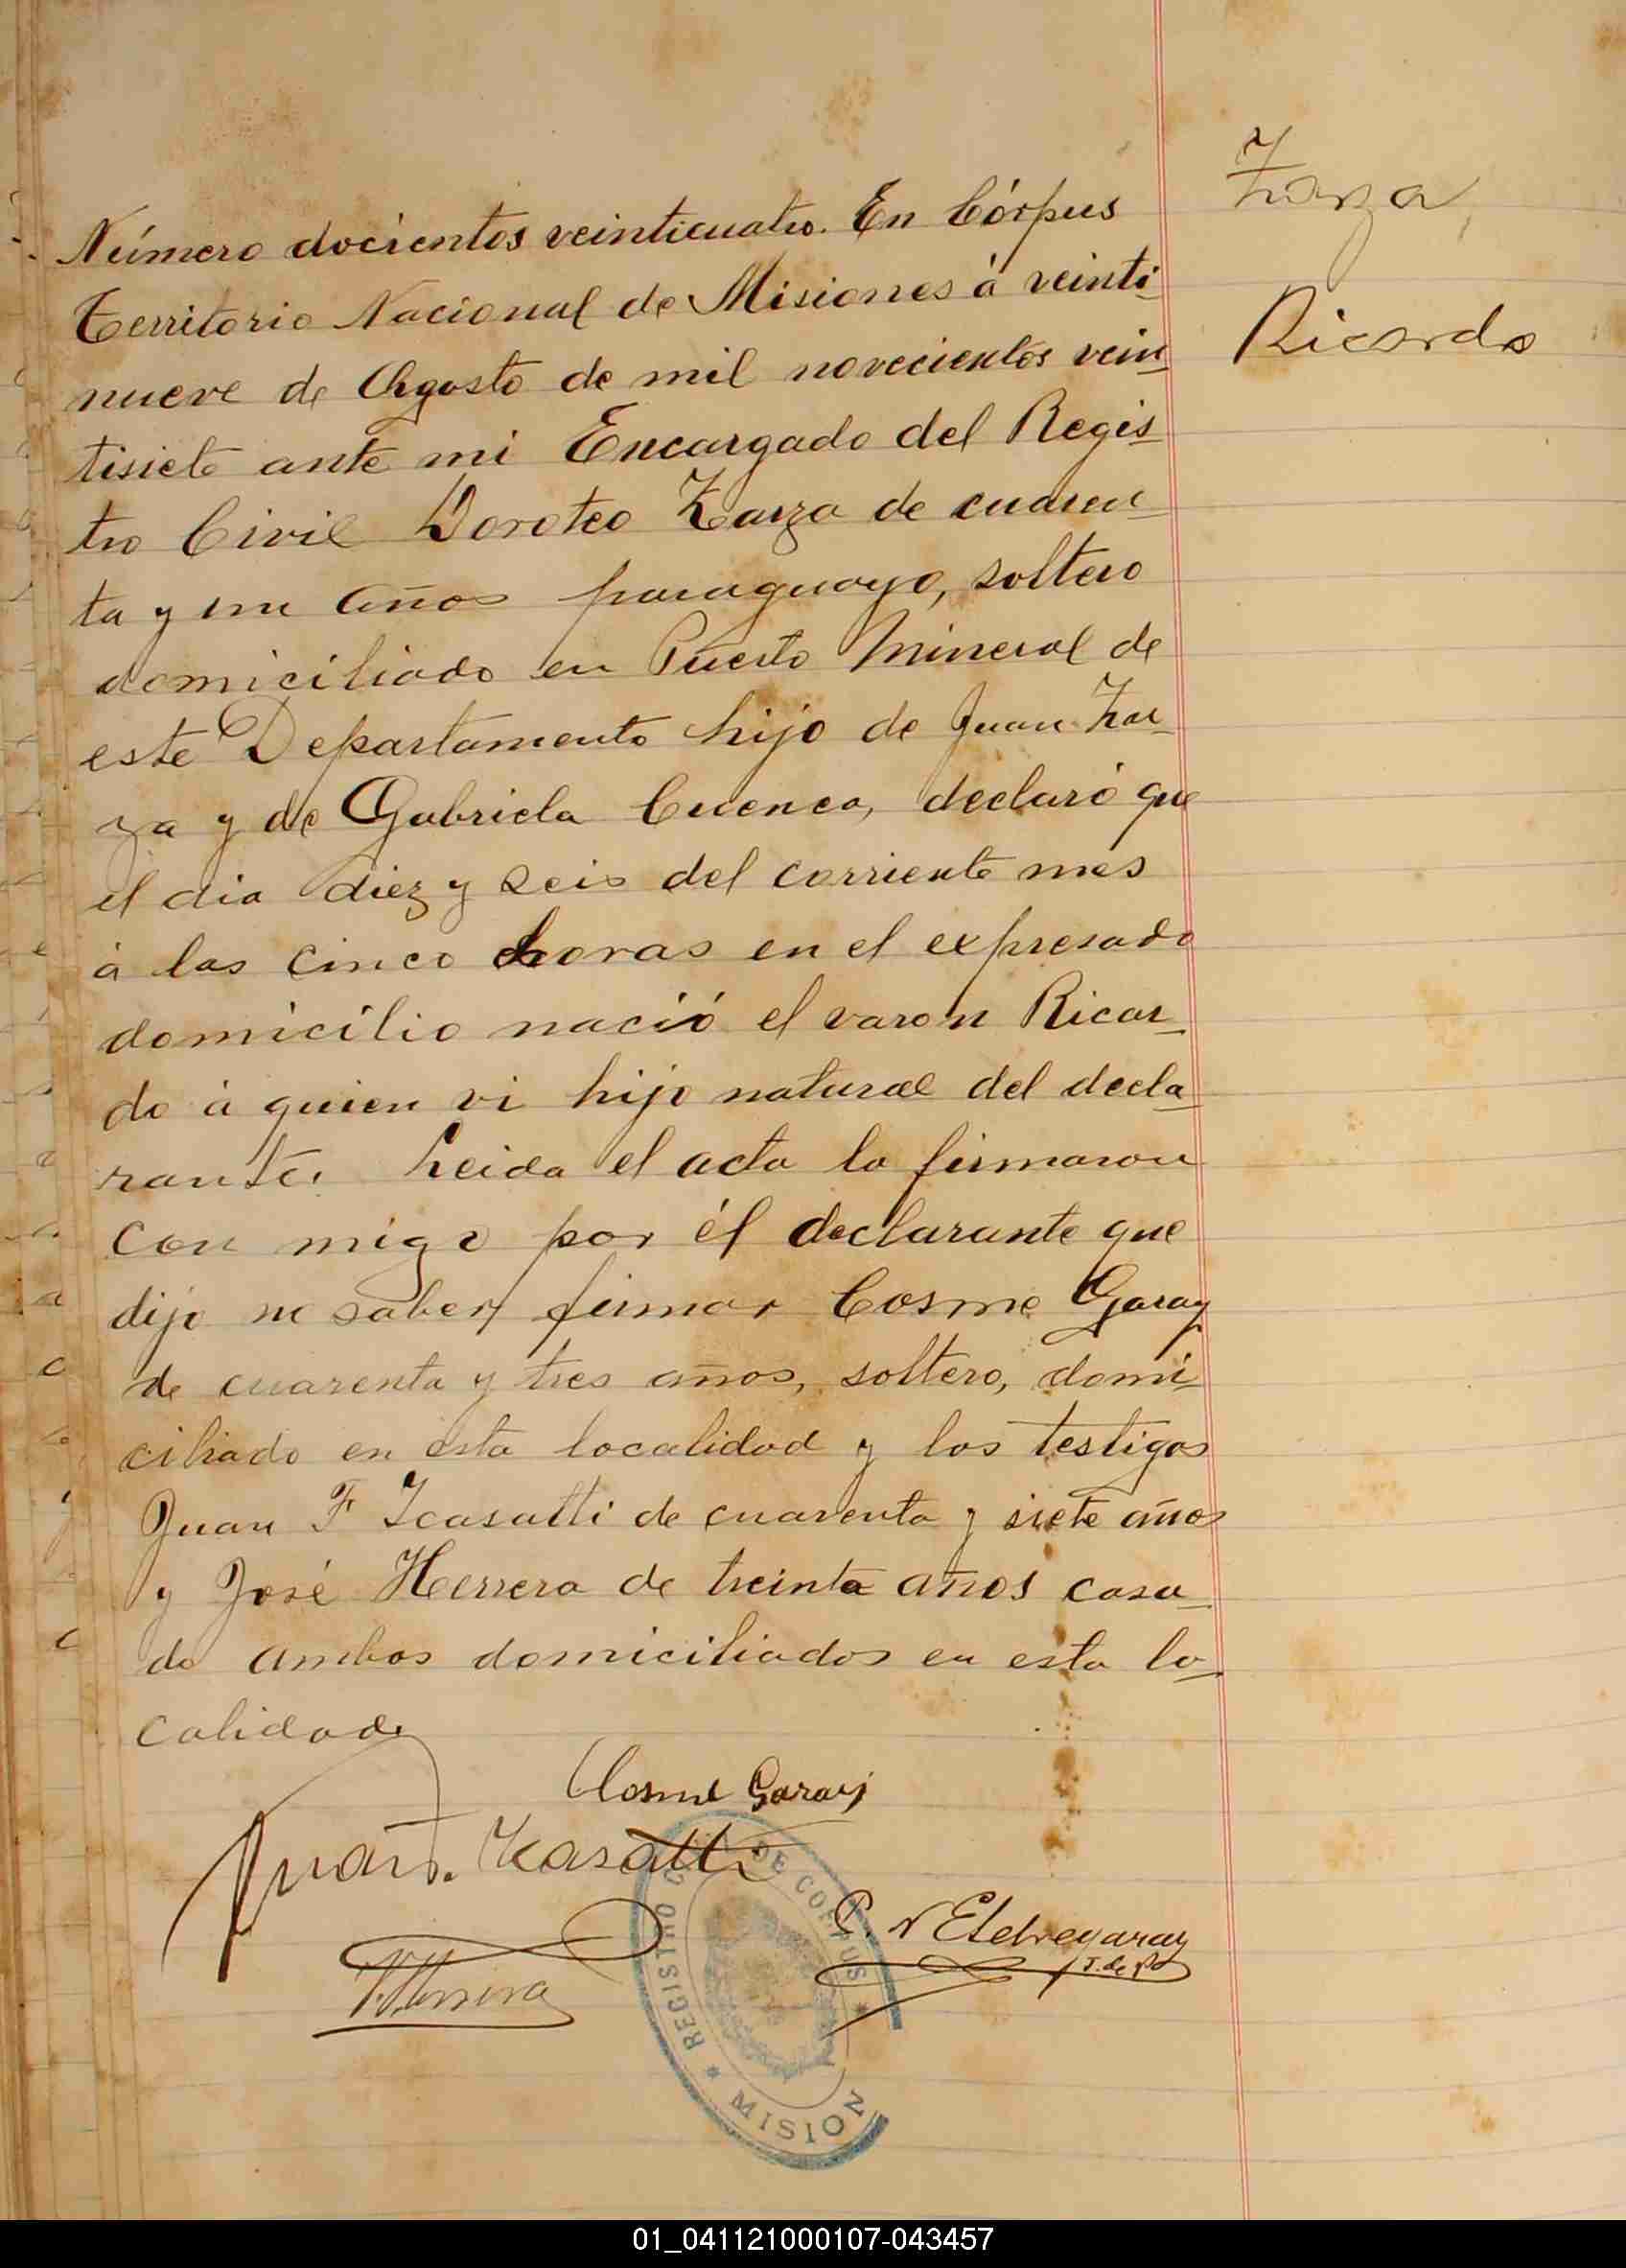 Zarza,
Ricardo
Número docientos veinticuatro. En Córpus
Territorio Nacional de Misiones á veinti-
nueve de Agosto de mil novecientos vein-
tisiete ante mi Encargado del Regis-
tro Civil Doroteo Zarza de cuaren-
ta y un años paraguayo, soltero
domiciliado en Puerto Mineral de
este Departamento hijo de Juan Zar-
za y de Gabriela Cuenca, declaró que
el dia diez y seis del corriente mes
á las cinco horas en el expresado
domicilio nació el varon Ricar-
do á quien vi hijo natural del decla-
rante. Leida el acta la firmaron
con migo por él declarante que
dijo no saber firmar Cosme Garay
de cuarenta y tres años, soltero, domi-
ciliado en esta localidad y los testigos
Juan F Icasatti de cuarenta y siete años
y José Herrera de treinta años casa-
do ambos domiciliados en esta lo-
calidad
Cosme Garay
Juan F. Icasatti
P. N Etchegaray
J. de P
J. Herrera
REGISTRO C DE CORPUS
MISION
01_041121000107-043457